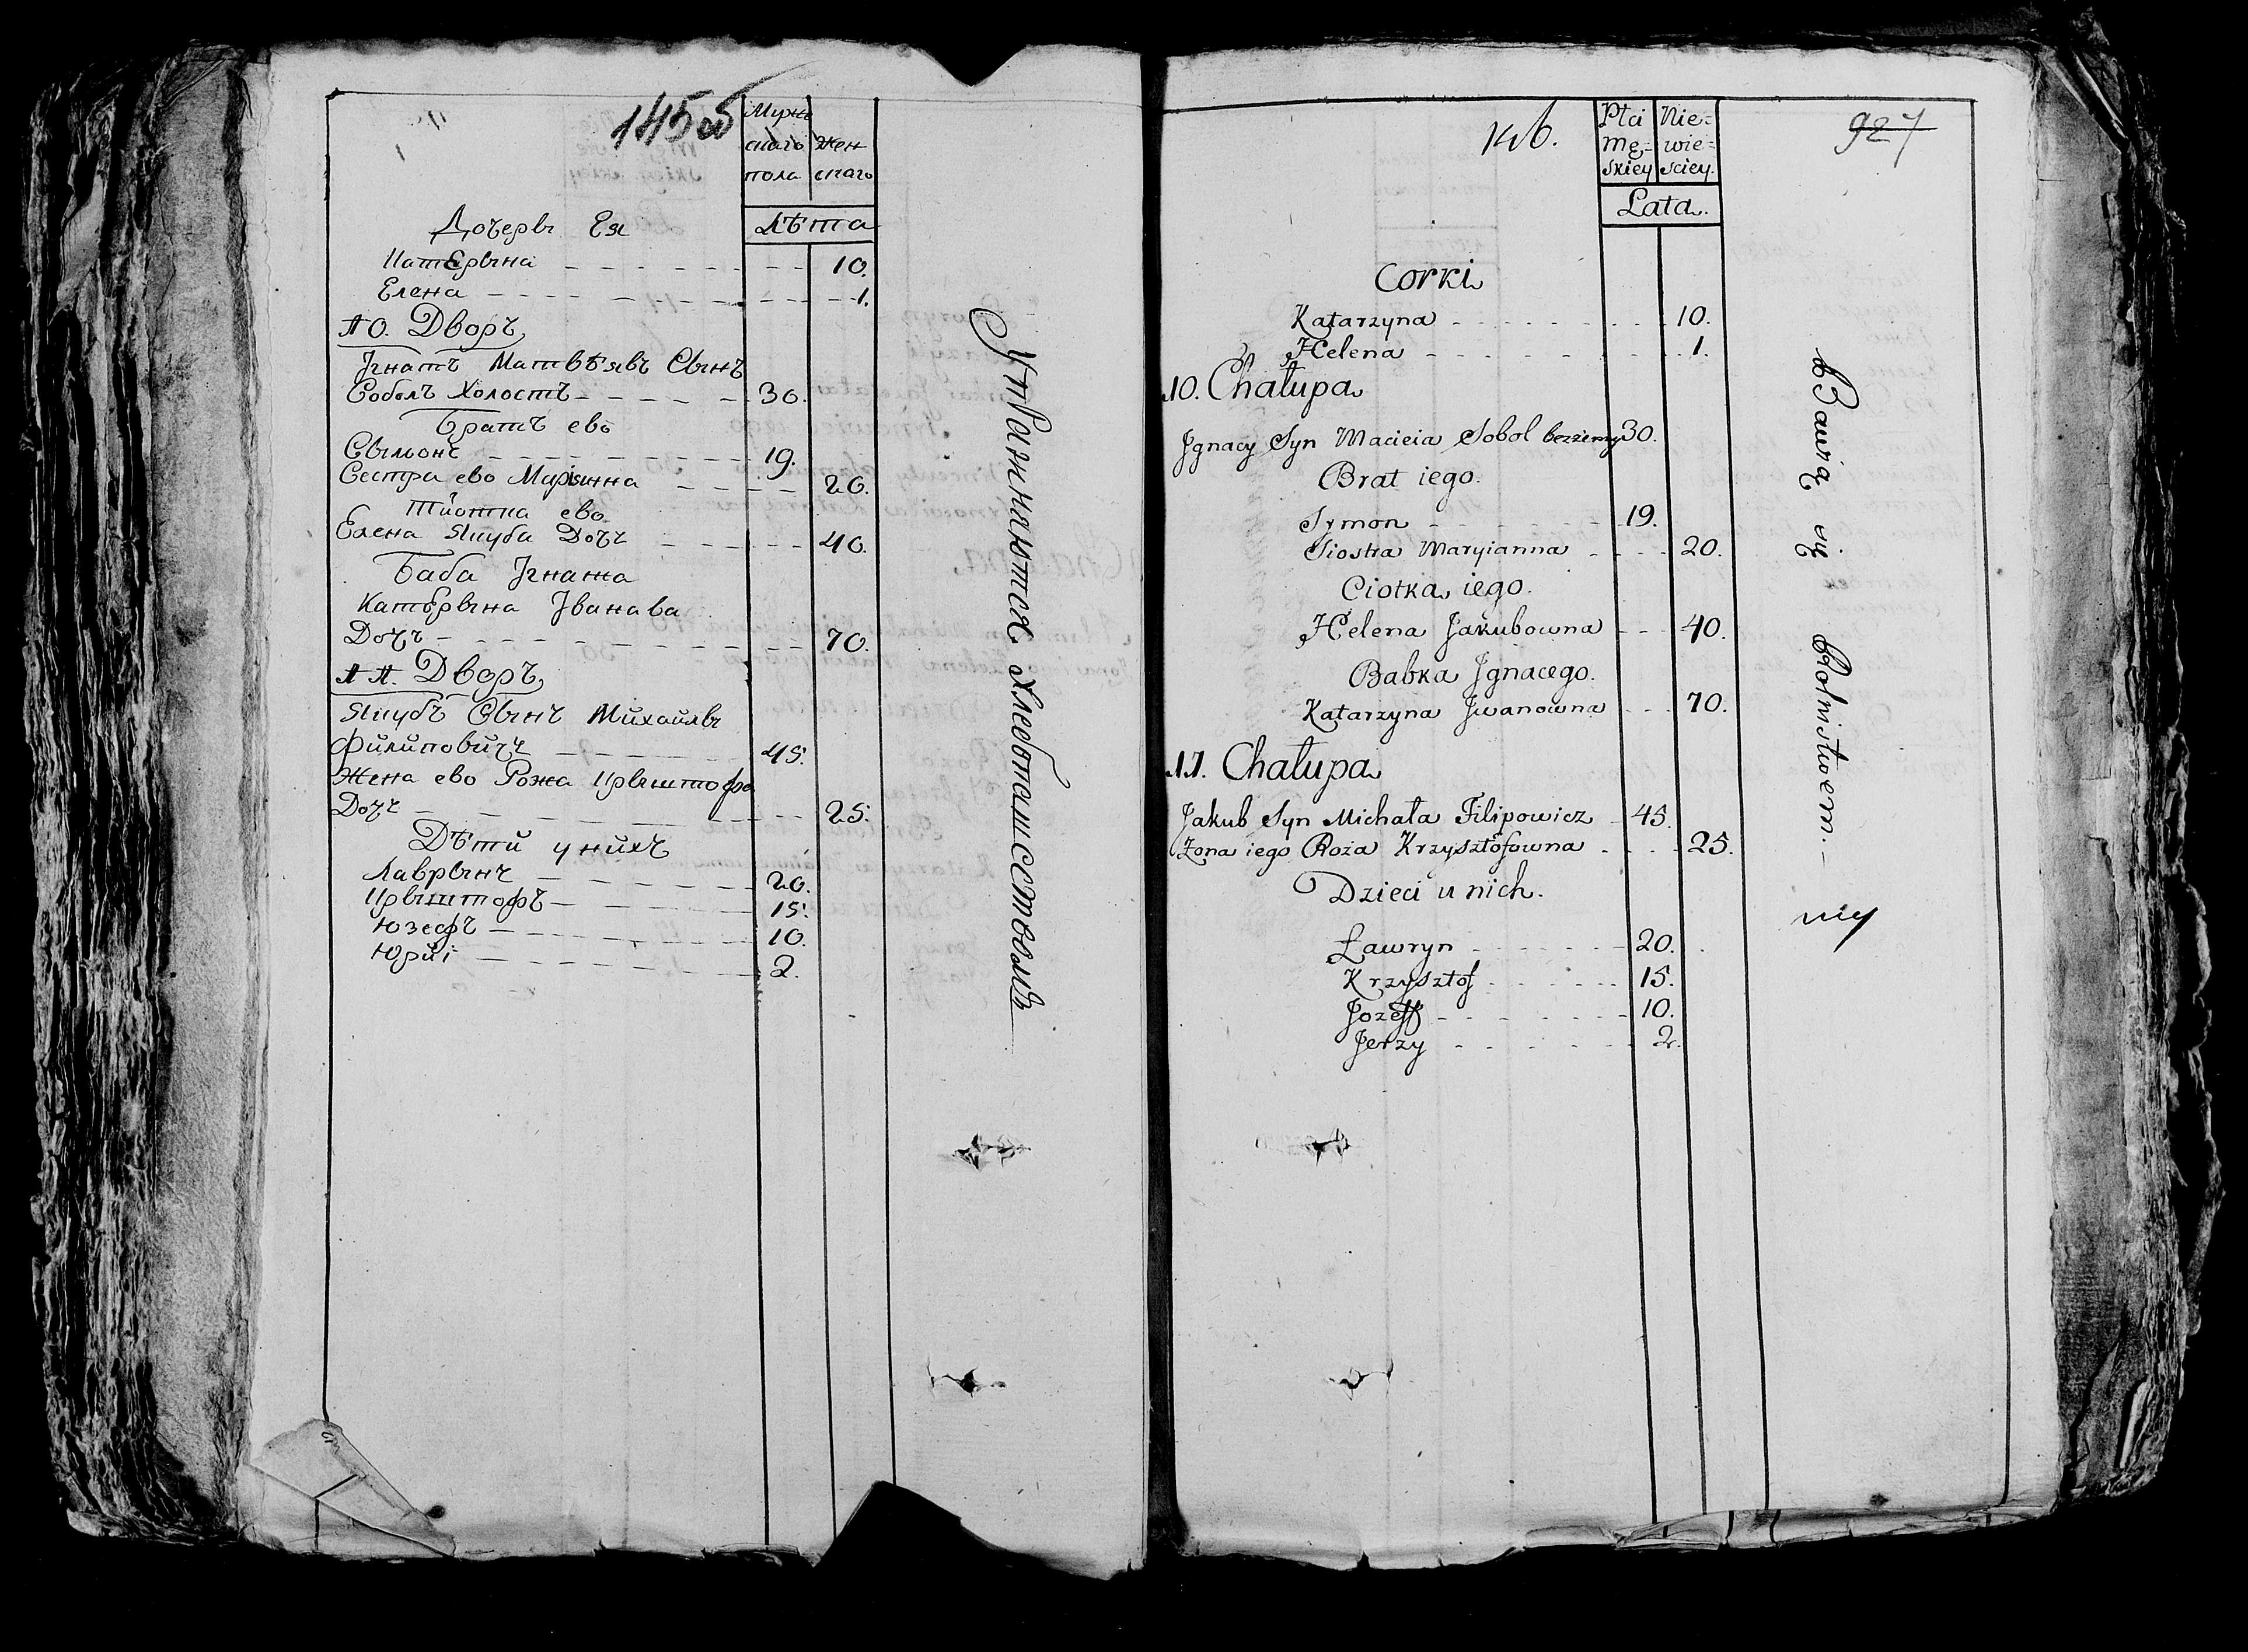 145 об
Мужс
скаго Жен
пола скаго
Лѣта
Дочеры Ея
Катерына 10.
Елена 1.
10. Дворъ
Iгнатъ Матвѣявъ Сынъ
Соболъ Холостъ 30.
Братъ ево
Сымонъ 19.
Сестра ево Марыанна 20.
Тиотка ево
Елена Якуба Дочъ 40.
Баба Iгната
Катерына Iванава
Дочъ 70.
11. Дворъ
Якубъ Сынъ Михайлы
Филиповичъ 45.
Жена ево Рожа Крыштофа
Дочъ 25.
Дѣти у нихъ
Лаврынъ 20.
Крыштофъ 15.
Юзефъ 10.
Юрйi 2.
Упражняются хлебопашествомъ
146.
927
Płci Nie-
mę- wie-
skiey sciey.
Lata.
Corki
Katarzyna 10.
Helena 1.
10. Chałupa
Jgnacy Syn Macieia Sobol bezżenny 30.
Brat iego.
Symon 19.
Siostra Maryianna 20.
Ciotka iego.
Helena Jakubowna 40.
Babka Jgnacego.
Katarzyna Jwanowna 70.
11. Chałupa
Jakub Syn Michała Filipowicz 45.
Żona iego Roża Krzysztofowna 25.
Dzieci u nich.
Ławryn 20.
Krzysztof 15.
Jozeff 10.
Jerzy 2.
Bawią się Rolnistwem.